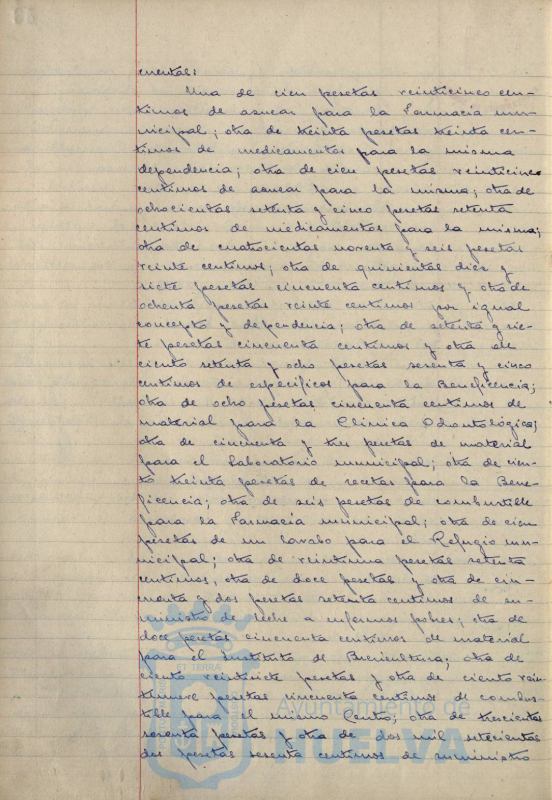 cuentas:
Una de cien pesetas veinticinco cen-
timos de azucar para la Farmacia mu-
nicipal; otra de treinta pesetas treinta cen-
timos de medicamentos para la misma
dependencia; otra de cien pesetas veinticinco
centimos de azucar para la misma; otra de
ochocientas setenta y cinco pesetas setenta
centimos de medicamentos para la misma;
otra de cuatrocientas noventa y seis pesetas
veinte centimos; otra de quinientas diez y
siete pesetas cincuenta centimos y otra de
ochenta pesetas veinte centimos por igual
concepto y dependencia; otra de setenta y sie-
te pesetas cincuenta centimos y otra de
ciento setenta y ocho pesetas sesenta y cinco
centimos de especificos para la Beneficencia;
otra de ocho pesetas cincuenta centimos de
material para la Clinica Odontológica;
otra de cincuenta y tres pesetas de material
para el Laboratorio municipal; otra de cien-
to treinta pesetas de recetas para la Bene-
ficencia; otra de seis pesetas de combustible
para la Farmacia municipal; otra de cien
pesetas de un lavabo para el Refugio mu-
nicipal; otra de veintiuna pesetas setenta
centimos, otra de doce pesetas y otra de cin-
cuenta y dos pesetas setenta centimos de su-
ministro de leche a enfermos pobres; otra de
doce pesetas cincuenta centimos de material
para el Instituto de Puericultura; otra de
ciento veintisiete pesetas y otra de ciento vein-
tinueve pesetas cincuenta centimos de combus-
tible para el mismo Centro; otra de trescientas
sesenta pesetas y otra de dos mil setecientas
dos pesetas sesenta centimos de suministro
ET TERRÆ
Ayuntamiento de
HUELVA